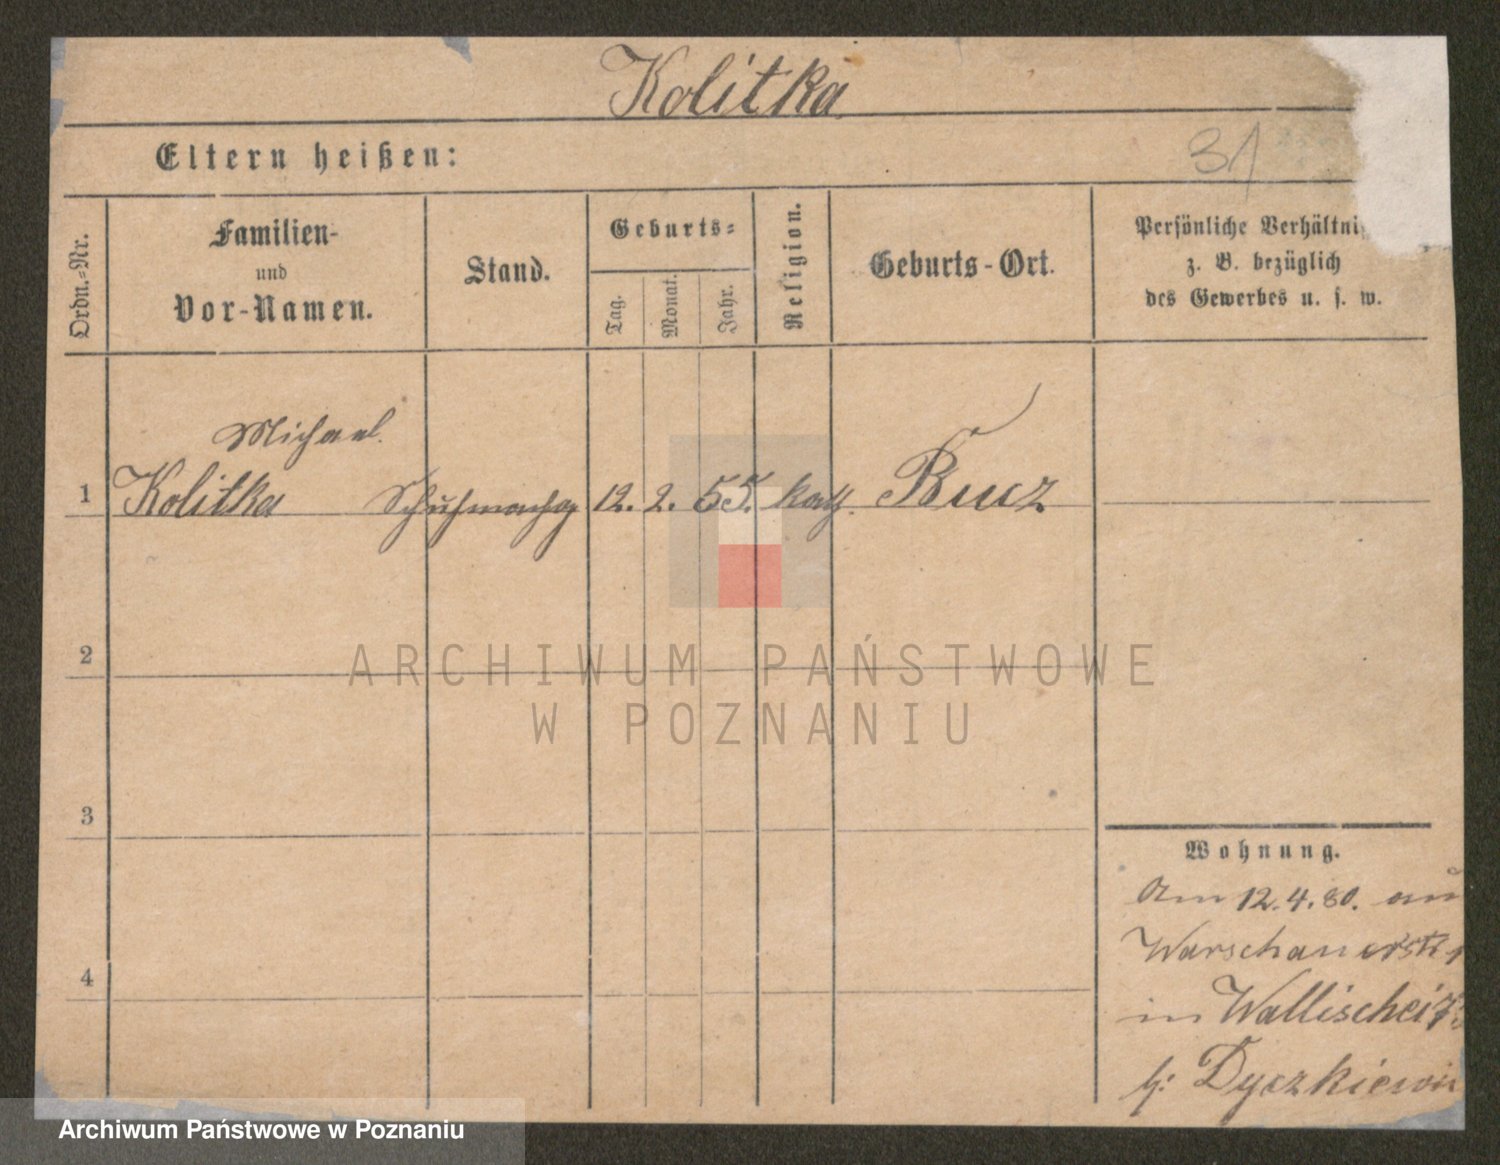 Kolitka
Eltern heißen:
31
Ordn.-Nr.
Familien-
und
Vor-Namen.
Stand.
Geburts-
Tag.
Monat.
Jahr.
Religion.
Geburts-Ort.
Persönliche Verhältni
z. B. bezüglich
des Gewerbes u. s. w.
Michael
1 Kolitka Schuhmacherg 12. 2. 55. kath. Bucz
2
3
4
Wohnung.
Am 12.4.80. au
Warschauerstr
in Wallischei 73
b: Dyczkiewi
ARCHIWUM PAŃSTWOWE
W POZNANIU
Archiwum Państwowe w Poznaniu